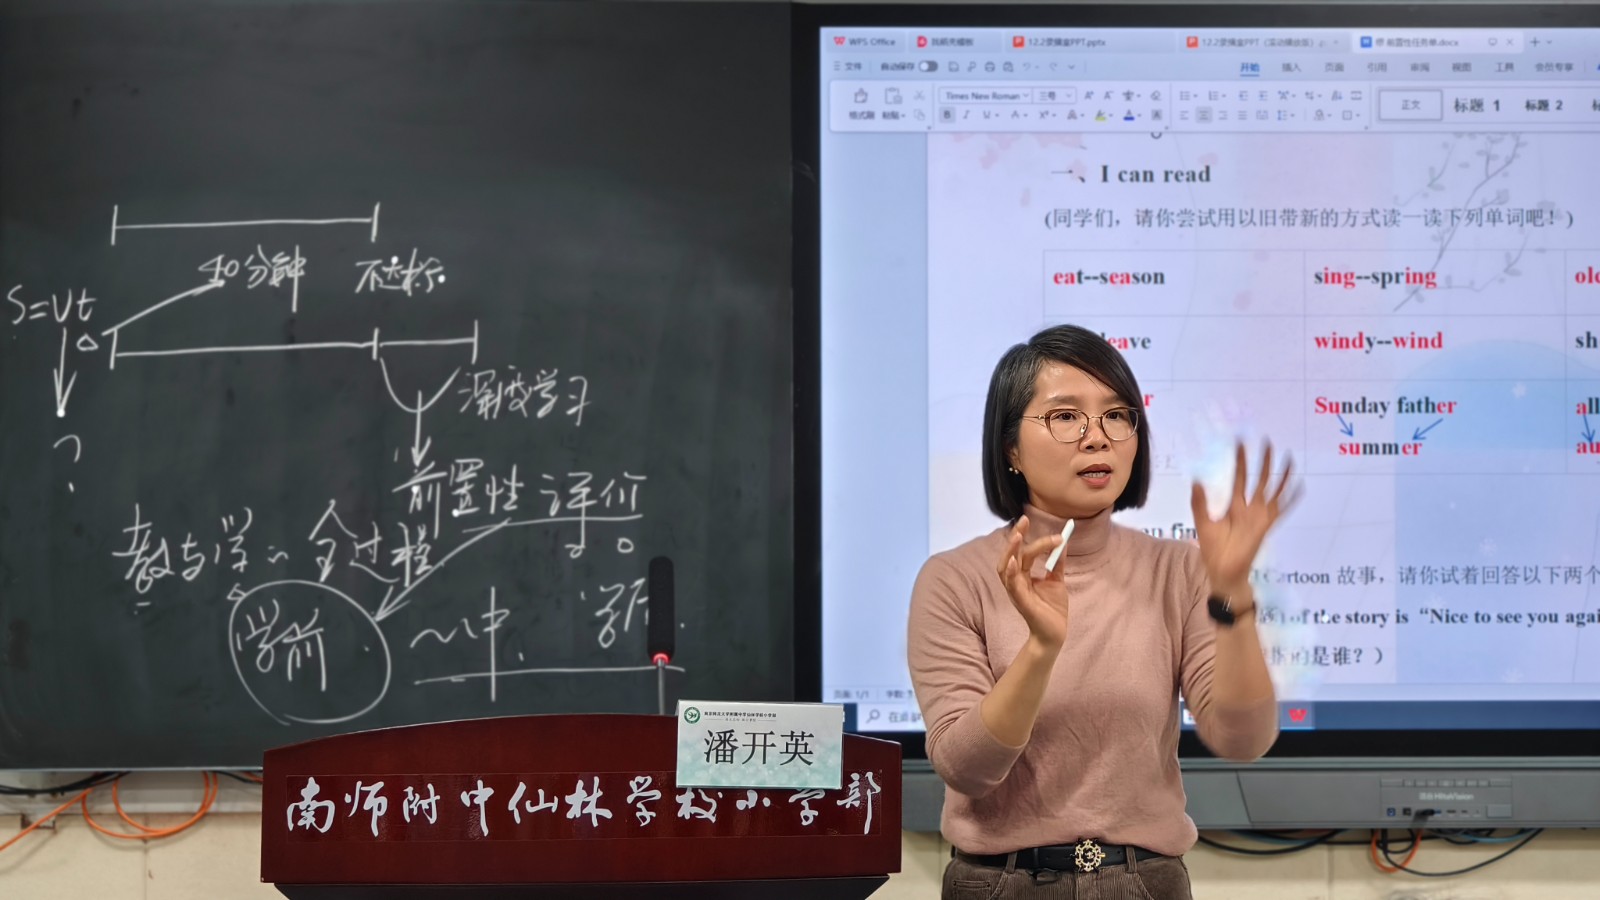 40分钟 不达标
S=Vt
0
?
深度学习
前置性评价
教与学 全过程
学前 ~中 学后
南师附中仙林学校小学部
潘开英
WPS Office 12.2录播盒PPT.pptx 前置性任务单.docx
文件 自动保存 开始 插入 页面 引用 审阅 视图 工具 会员专享
格式刷 粘贴 Times New Roman 三号 正文 标题 1 标题 2
一、I can read
(同学们，请你尝试用以旧带新的方式读一读下列单词吧！)
eat--season sing--spring
eave windy--wind sh
r Sunday father all
summer au
Cartoon 故事，请你试着回答以下两个
of the story is “Nice to see you agai
的是谁？)
页面: 1/1
HiteVision